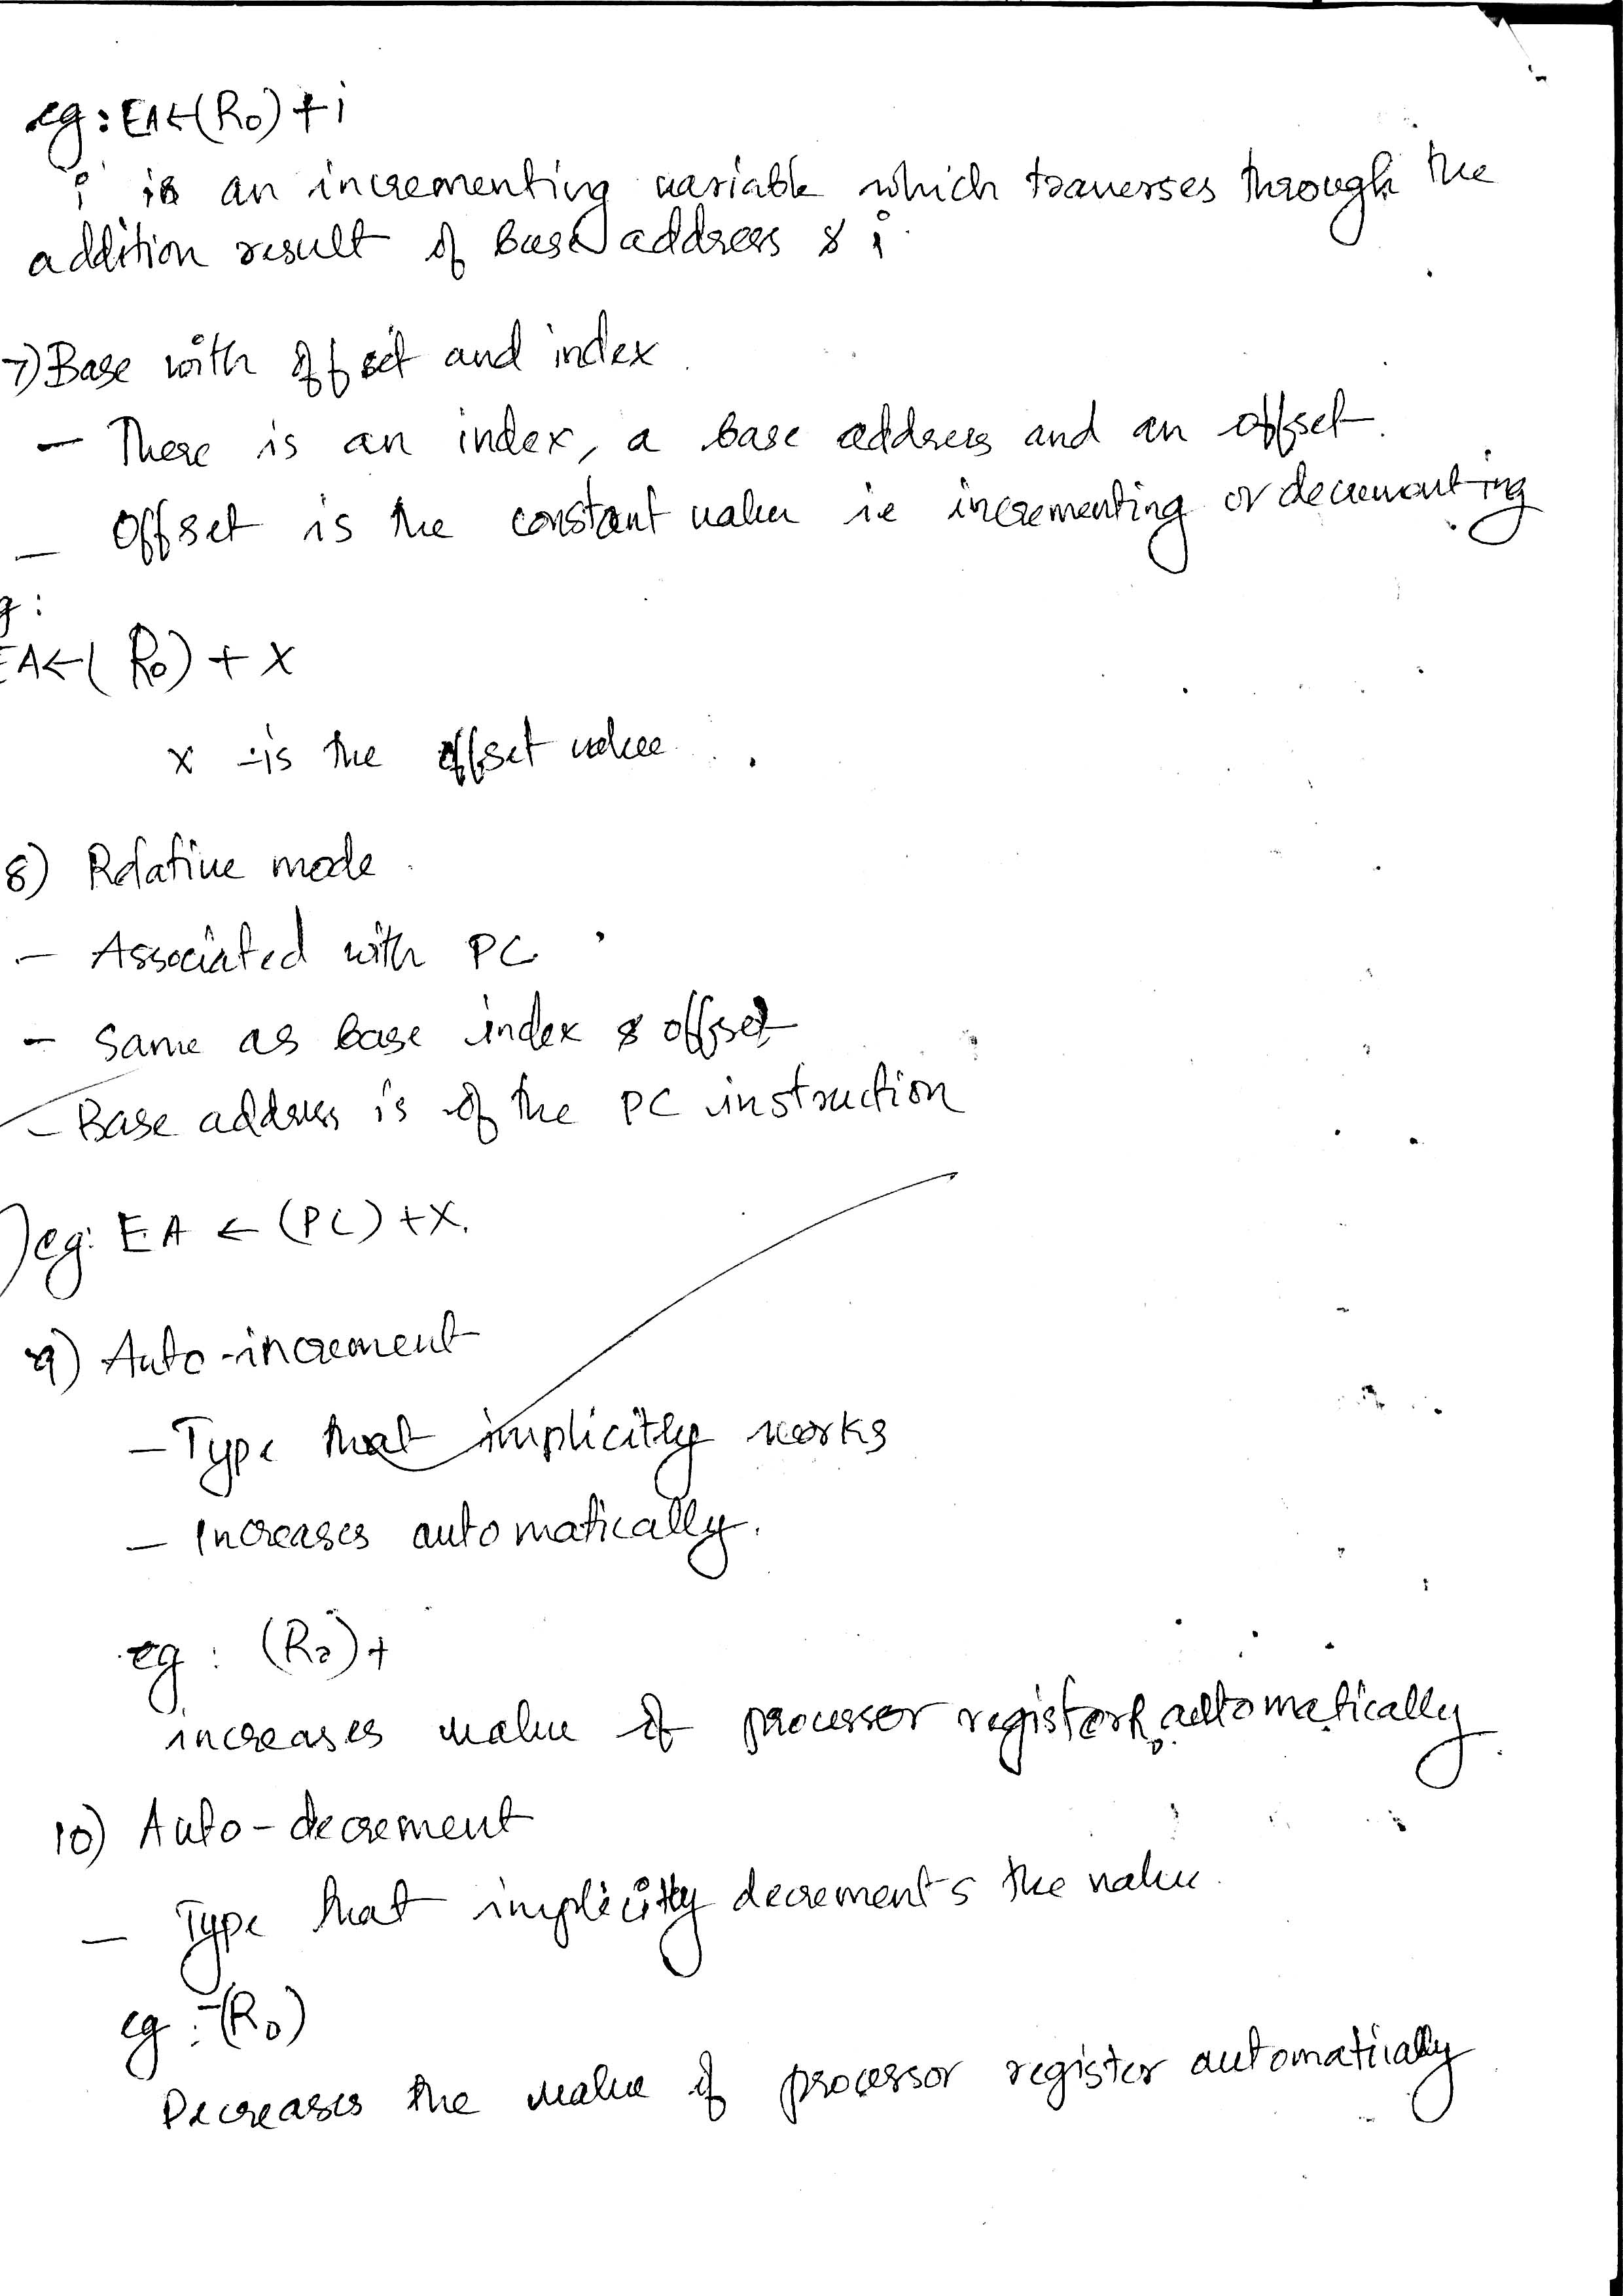 eg: EA←(R0)+i
i is an incrementing variable which traverses through the
addition result of Base address & i
7) Base with offset and index
- There is an index, a base address and an offset.
- Offset is the constant value ie incrementing or decrementing
g:
EA←(R0)+X
X -is the offset value
8) Relative mode
- Associated with PC
- Same as base index & offset
- Base address is of the PC instruction
eg: EA ← (PC)+X.
9) Auto-increment
- Type that implicitly works
- Increases automatically.
eg: (R0)+
increases value of processor register R0 automatically
10) Auto-decrement
- Type that implicitly decrements the value.
eg: -(R0)
Decreases the value of processor register automatically